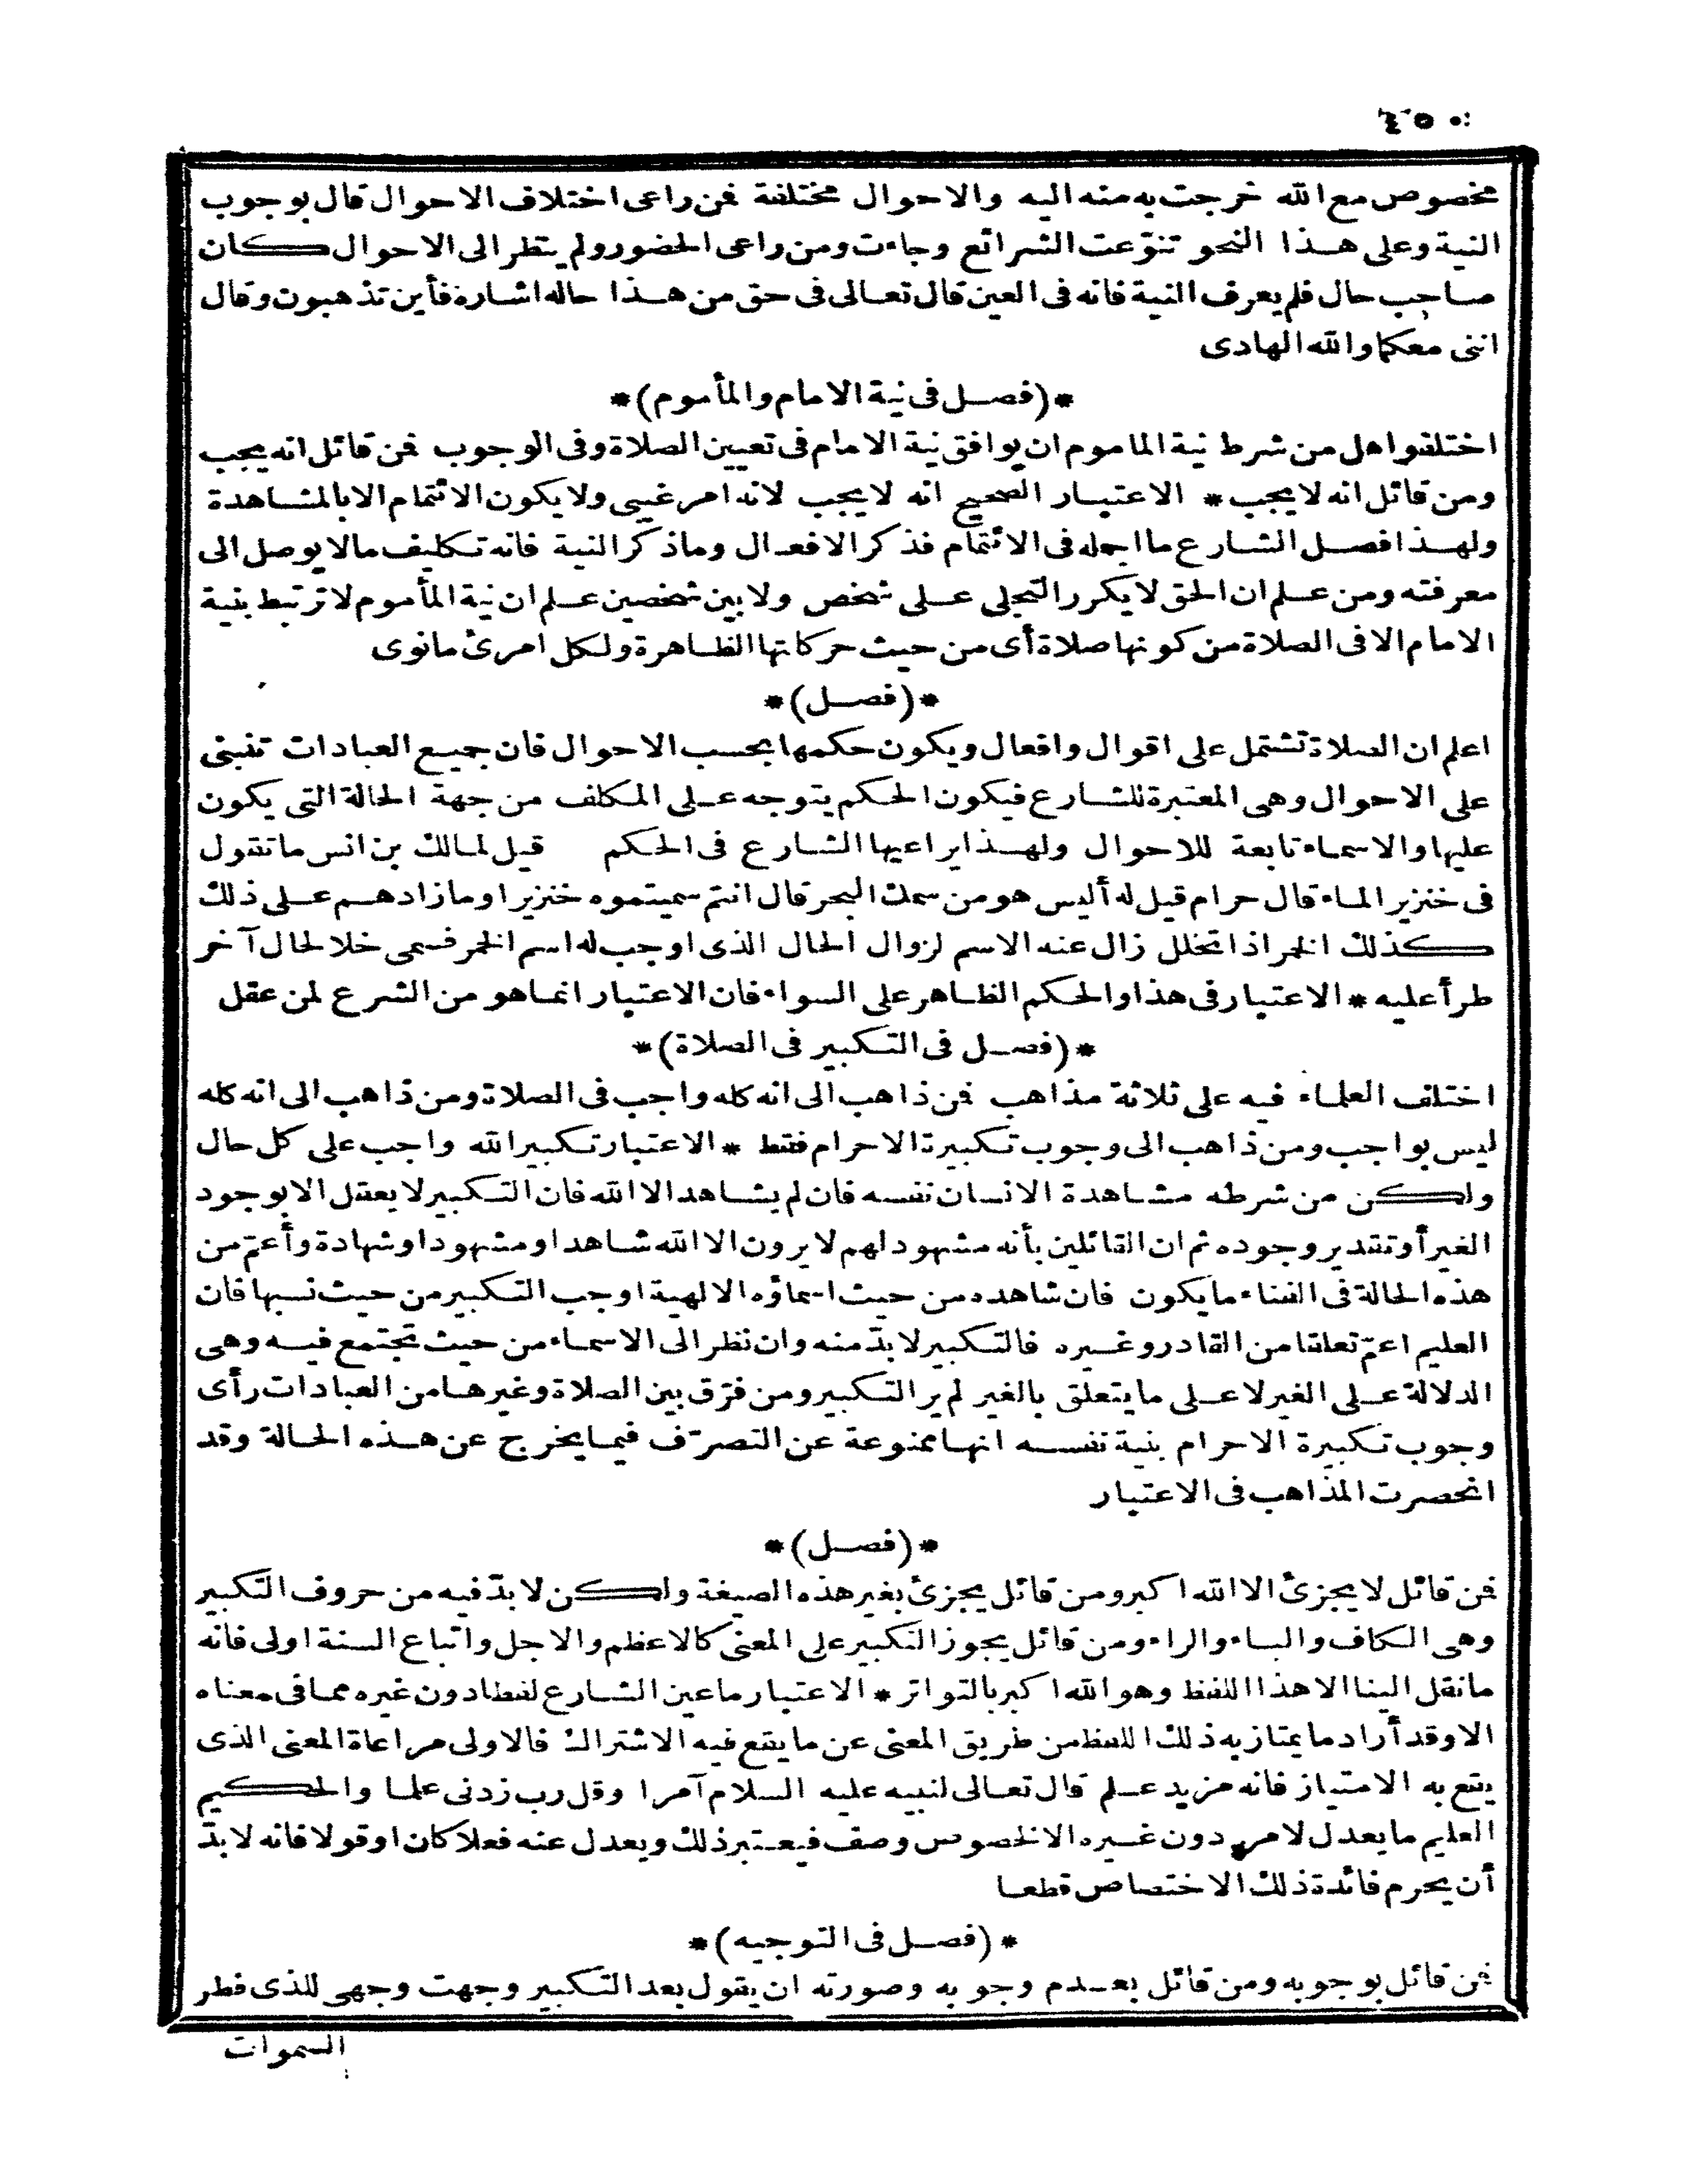 ٤٥٠
مخصوص مع الله خرجت به منه اليه والاحوال مختلفة فمن راعى اختلاف الاحوال قال بوجوب
النية وعلى هذا النحو تنوّعت الشرائع وجاءت ومن راعى الحضور ولم ينظر الى الاحوال كان
صاحب حال فلم يعرف النية فانه فى العين قال تعالى فى حق من هذا حاله اشارة فأين تذهبون وقال
اننى معكما والله الهادى
*(فصل فى نية الامام والمأموم)*
اختلفوا هل من شرط نية الماموم ان يوافق نية الامام فى تعيين الصلاة وفى الوجوب فمن قائل انه يجب
ومن قائل انه لا يجب * الاعتبار الصحيح انه لا يجب لانه امر غيبى ولا يكون الائتمام الا بالمشاهدة
ولهذا فصل الشارع ما اجمله فى الائتمام فذكر الافعال وما ذكر النية فانه تكليف ما لا يوصل الى
معرفته ومن علم ان الحق لا يكرر التجلى على شخص ولا بين شخصين علم ان نية المأموم لا ترتبط بنية
الامام الا فى الصلاة من كونها صلاة أى من حيث حركاتها الظاهرة ولكل امرئ ما نوى
*(فصل)*
اعلم ان الصلاة تشتمل على اقوال وافعال ويكون حكمها بحسب الاحوال فان جميع العبادات تنبنى
على الاحوال وهى المعتبرة للشارع فيكون الحكم يتوجه على المكلف من جهة الحالة التى يكون
عليها والاسماء تابعة للاحوال ولهذا يراعيها الشارع فى الحكم قيل لمالك بن انس ما تقول
فى خنزير الماء قال حرام قيل له أليس هو من سمك البحر قال انتم سميتموه خنزيرا وما زادهم على ذلك
كذلك الخمر اذا تخلل زال عنه الاسم لزوال الحال الذى اوجب له اسم الخمر فسمى خلا لحال آخر
طرأ عليه * الاعتبار فى هذا والحكم الظاهر على السواء فان الاعتبار انما هو من الشرع لمن عقل
*(فصل فى التكبير فى الصلاة)*
اختلف العلماء فيه على ثلاثة مذاهب فمن ذاهب الى انه كله واجب فى الصلاة ومن ذاهب الى انه كله
ليس بواجب ومن ذاهب الى وجوب تكبيرة الاحرام فقط * الاعتبار تكبير الله واجب على كل حال
ولكن من شرطه مشاهدة الانسان نفسه فان لم يشاهد الا الله فان التكبير لا يعقل الا بوجود
الغير أو تقدير وجوده ثم ان القائلين بأنه مشهود لهم لا يرون الا الله شاهدا ومشهودا وشهادة وأعمّ من
هذه الحالة فى الفناء ما يكون فان شاهده من حيث اسماؤه الالهية اوجب التكبير من حيث نسبها فان
العليم اعمّ تعلقا من القادر وغيره فالتكبير لا بدّ منه وان نظر الى الاسماء من حيث تجتمع فيه وهى
الدلالة على الغير لا على ما يتعلق بالغير لم ير التكبير ومن فرّق بين الصلاة وغيرها من العبادات رأى
وجوب تكبيرة الاحرام بنية نفسه انها ممنوعة عن التصرّف فيما يخرج عن هذه الحالة وقد
انحصرت المذاهب فى الاعتبار
*(فصل)*
فمن قائل لا يجزئ الا الله اكبر ومن قائل يجزئ بغير هذه الصيغة ولكن لا بدّ فيه من حروف التكبير
وهى الكاف والباء والراء ومن قائل يجوز التكبير على المعنى كالاعظم والاجل واتباع السنة اولى فانه
ما نقل الينا الا هذا اللفظ وهو الله اكبر بالتواتر * الاعتبار ما عين الشارع لفظا دون غيره مما فى معناه
الا وقد أراد ما يمتاز به ذلك اللفظ من طريق المعنى عن ما يقع فيه الاشتراك فالاولى مراعاة المعنى الذى
يقع به الامتياز فانه مزيد علم قال تعالى لنبيه عليه السلام آمرا وقل رب زدنى علما والحكيم
العليم ما يعدل لامر دون غيره الا لخصوص وصف فيعتبر ذلك ويعدل عنه فعلا كان او قولا فانه لا بدّ
أن يحرم فائدة ذلك الاختصاص قطعا
*(فصل فى التوجيه)*
فمن قائل بوجوبه ومن قائل بعدم وجوبه وصورته ان يقول بعد التكبير وجهت وجهى للذى فطر
السموات